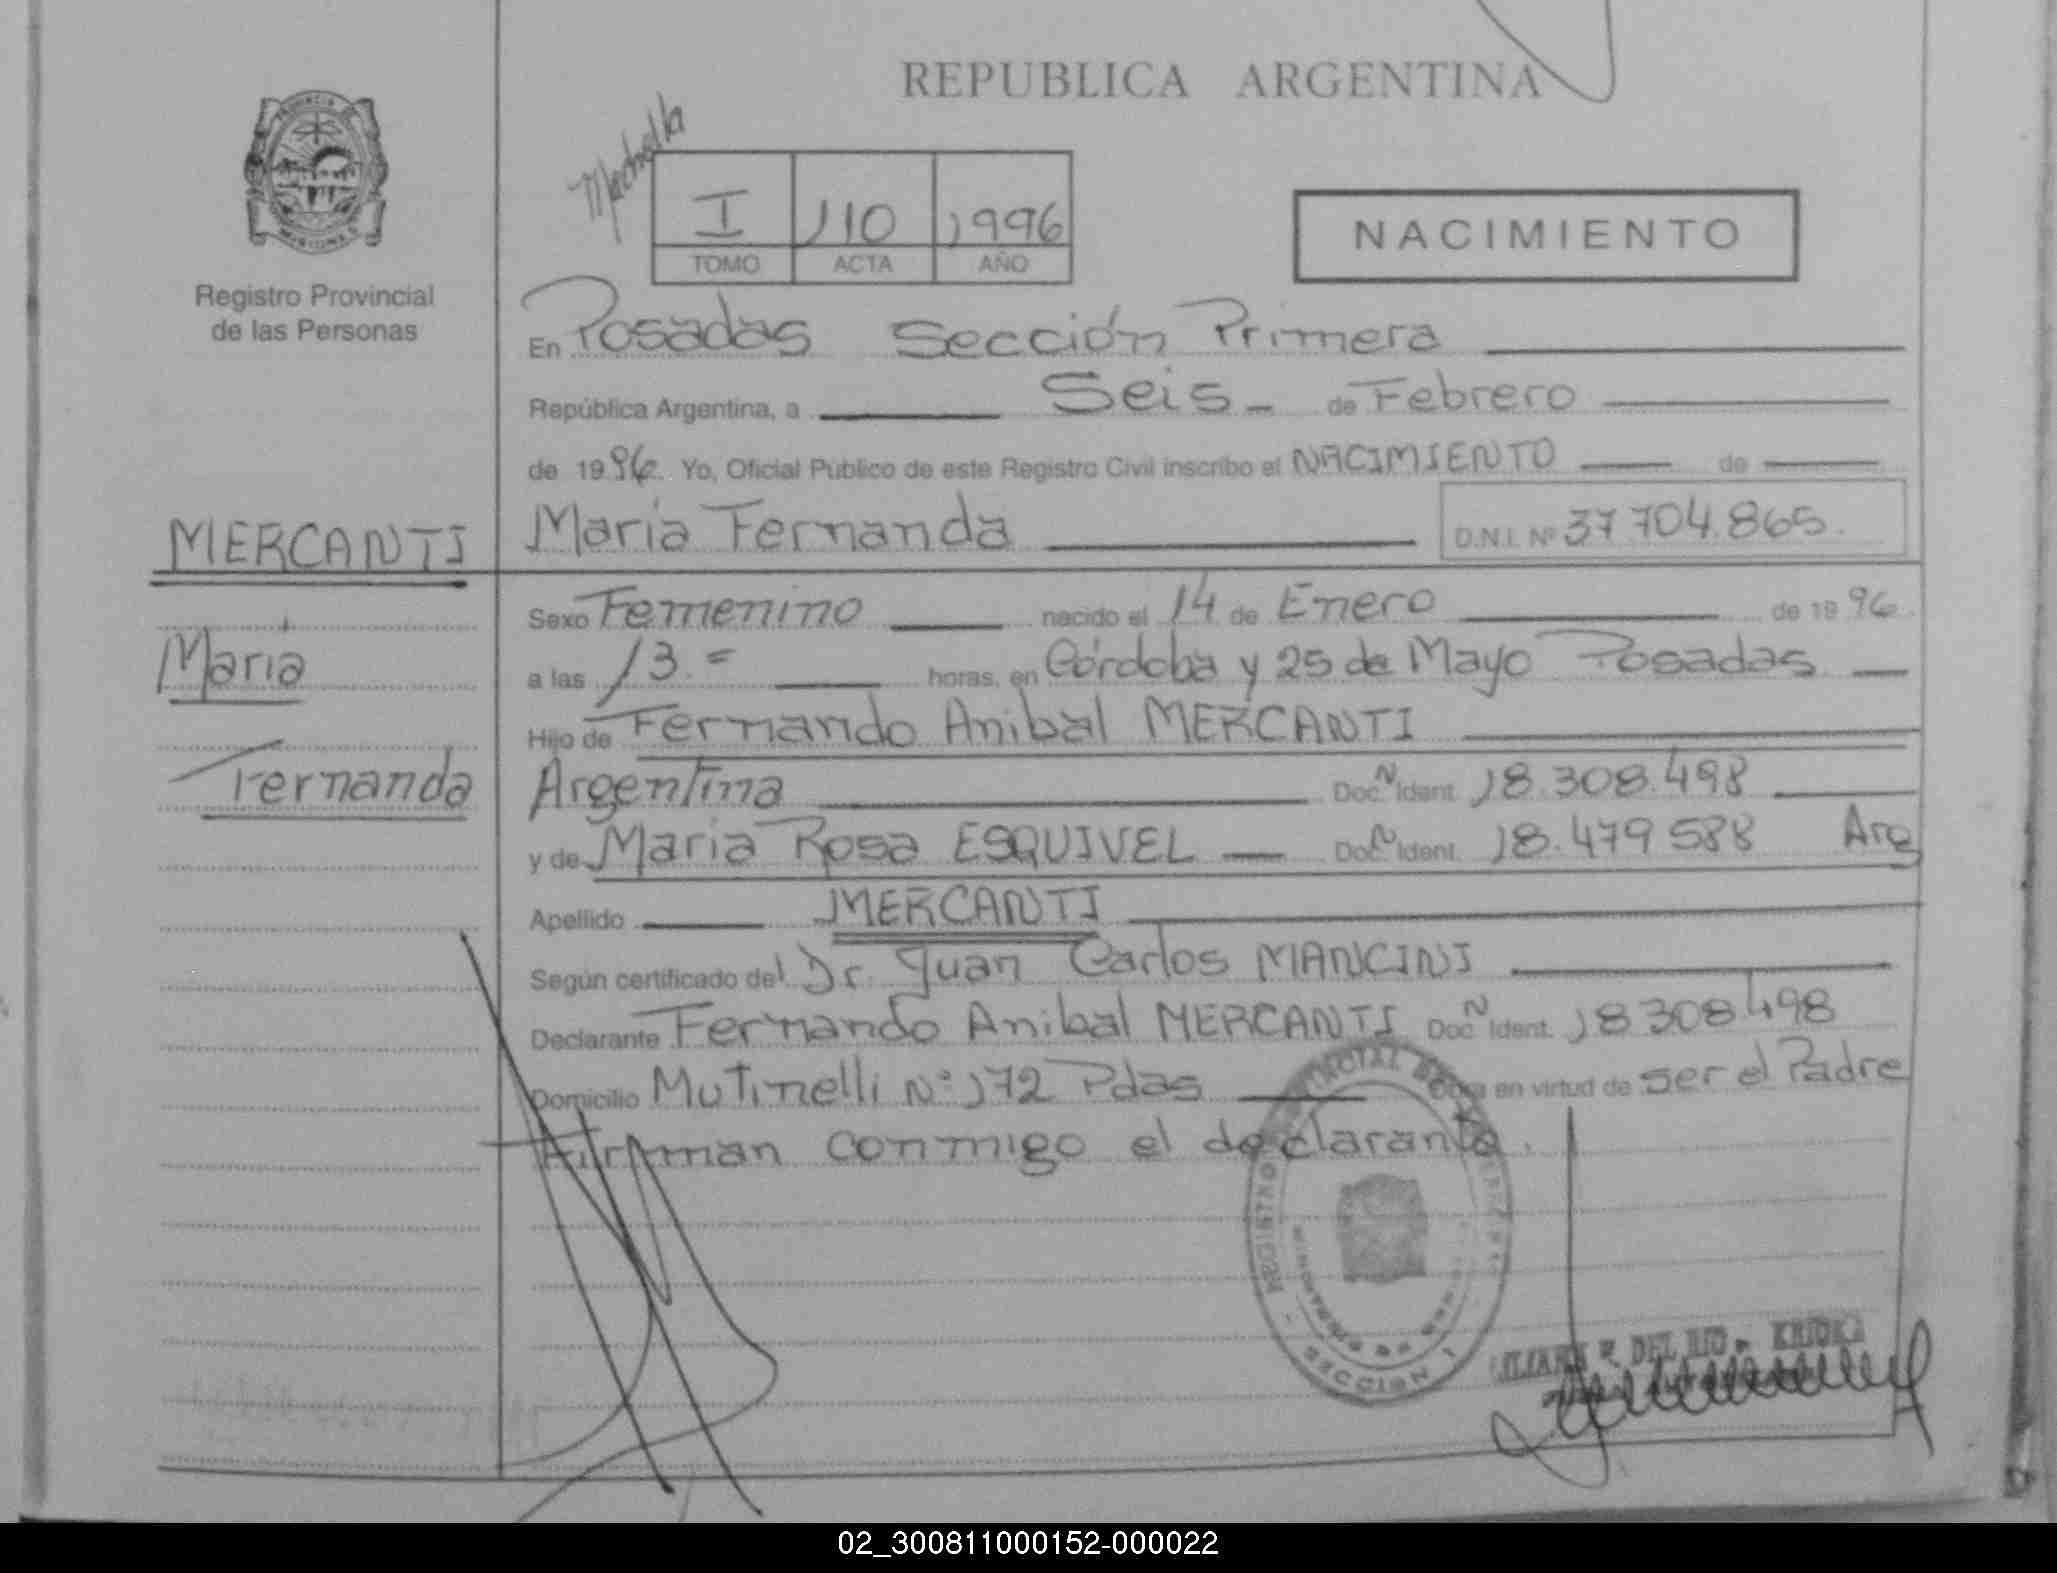 REPUBLICA ARGENTINA
I 110 1996
TOMO ACTA AÑO
NACIMIENTO
Registro Provincial
de las Personas
En Posadas Sección Primera
República Argentina, a Seis de Febrero
de 1996. Yo, Oficial Público de este Registro Civil inscribo el NACIMIENTO de
MERCANTI
Maria
Fernanda
Maria Fernanda D.N.I. Nº 37 704.865.
Sexo Femenino nacido el 14 de Enero de 1996
a las 13.= horas, en Córdoba y 25 de Mayo Posadas
Hijo de Fernando Anibal MERCANTI
Argentina Doc. N Ident. 18.308.498
y de Maria Rosa ESQUIVEL Doc. N Ident. 18.479 588 Arg
Apellido MERCANTI
Según certificado del Dr. Juan Carlos MANCINI
Declarante Fernando Anibal MERCANTI Doc. N Ident. 18308498
Domicilio Mutinelli Nº 172 Pdas Obra en virtud de ser el Padre
Firman conmigo el declarante.
SECCION 1
02_300811000152-000022